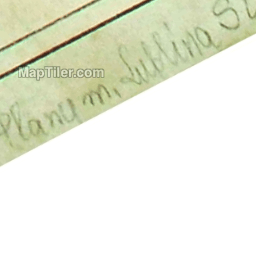 MapTiler.com
Plany m. Lublina